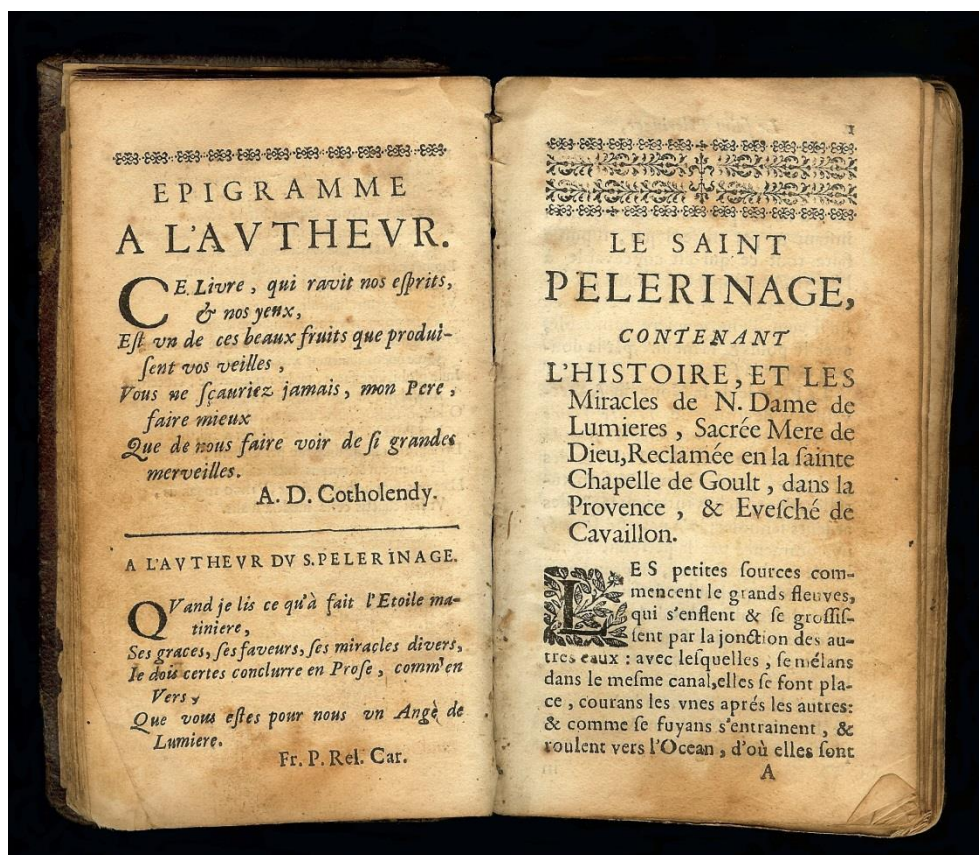 EPIGRAMME
A L'AVTHEVR.
CE Livre, qui ravit nos eſprits,
& nos yeux,
Eſt vn de ces beaux fruits que produi-
ſent vos veilles,
Vous ne ſçauriez jamais, mon Pere,
faire mieux
Que de nous faire voir de ſi grandes
merveilles.
A. D. Cotholendy.
A L'AVTHEVR DV S. PELERINAGE.
QVand je lis ce qu'à fait l'Etoile ma-
tiniere,
Ses graces, ſes faveurs, ſes miracles divers,
Ie dois certes conclurre en Proſe, comm'en
Vers,
Que vous eſtes pour nous vn Angè de
Lumiere.
Fr. P. Rel. Car.
1
LE SAINT
PELERINAGE,
CONTENANT
L'HISTOIRE, ET LES
Miracles de N. Dame de
Lumieres, Sacrée Mere de
Dieu, Reclamée en la ſainte
Chapelle de Goult, dans la
Provence, & Eveſché de
Cavaillon.
LES petites ſources com-
mencent le grands fleuves,
qui s'enflent & ſe groſſiſ-
ſent par la jonction des au-
tres eaux : avec leſquelles, ſe mélans
dans le meſme canal, elles ſe font pla-
ce, courans les vnes aprés les autres:
& comme ſe fuyans s'entrainent, &
roulent vers l'Ocean, d'où elles ſont
A